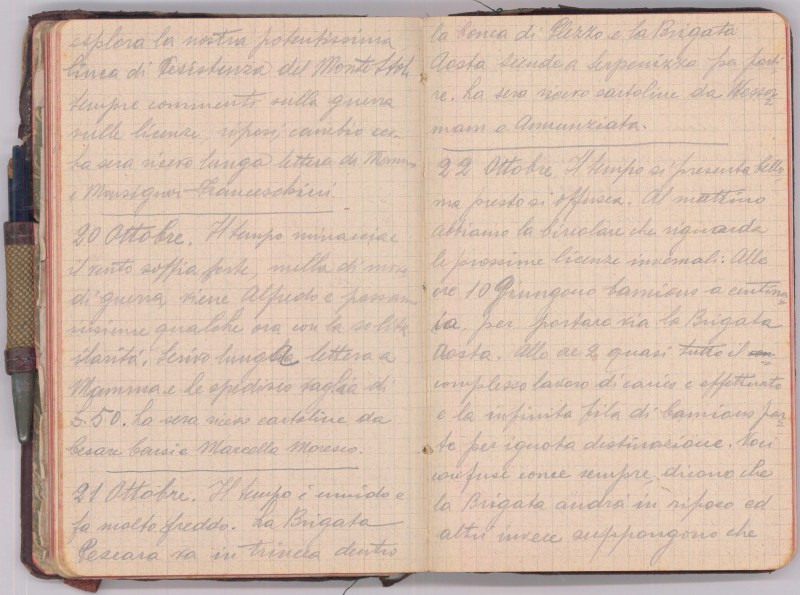 esplora la nostra potentissima
linea di Resistenza del Monte Stol.
sempre commenti sulla guerra
sulle licenze, riposi, cambio ecc.
La sera ricevo lunga lettera di Mamma
e Monsignor Franceschini.
20 Ottobre. Il tempo minaccia e
il vento soffia forte, nulla di nuovo
di guerra, viene Alfredo e passiamo
insieme qualche ora con la solita
ilarità. Scrivo lunga lettera a
Mamma e le spedisco vaglia di
L. 50. La sera ricevo cartoline da
Cesare Corsi e Marcella Moresco.
21 Ottobre. Il tempo è umido e
fa molto freddo. La Brigata
Pescara va in trincea dentro
la conca di Plezzo e la Brigata
Aosta scende a Serpenizza per parti
re. La sera ricevo cartoline da
mam e Annunziata.
22 Ottobre. Il tempo si presenta bello
ma presto si offusca. Al mattino
abbiamo la Circolare che riguarda
le prossime licenze invernali. Alle
ore 10 Giungono Camions a centina
ia, per portare via la Brigata
Aosta. Alle ore 2 quasi tutto il
complesso lavoro di carico è effettuato
e la infinita fila di Camions par
te per ignota destinazione. Voci
confuse come sempre, dicono che
la Brigata andrà in riposo ed
altri invece suppongono che